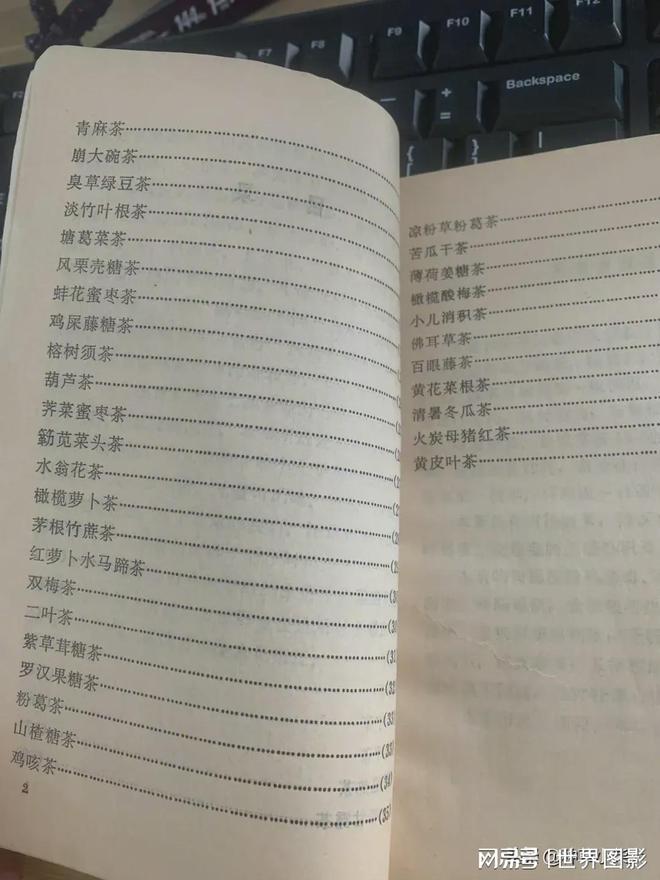 青麻茶
崩大碗茶
臭草绿豆茶
淡竹叶根茶
塘葛菜茶
风栗壳糖茶
蚌花蜜枣茶
鸡屎藤糖茶
榕树须茶
葫芦茶
荠菜蜜枣茶
簕苋菜头茶
水翁花茶
橄榄萝卜茶
茅根竹蔗茶
红萝卜水马蹄茶
双梅茶
二叶茶
紫草茸糖茶
罗汉果糖茶 (32)
粉葛茶 (33)
山楂糖茶 (34)
鸡咳茶 (35)
2
凉粉草粉葛茶
苦瓜干茶
薄荷姜糖茶
橄榄酸梅茶
小儿消积茶
佛耳草茶
百眼藤茶
黄花菜根茶
清暑冬瓜茶
火炭母猪红茶
黄皮叶茶
F7
F8
F9
F10
F11
F12
Backspace
搜狐号@世界图影